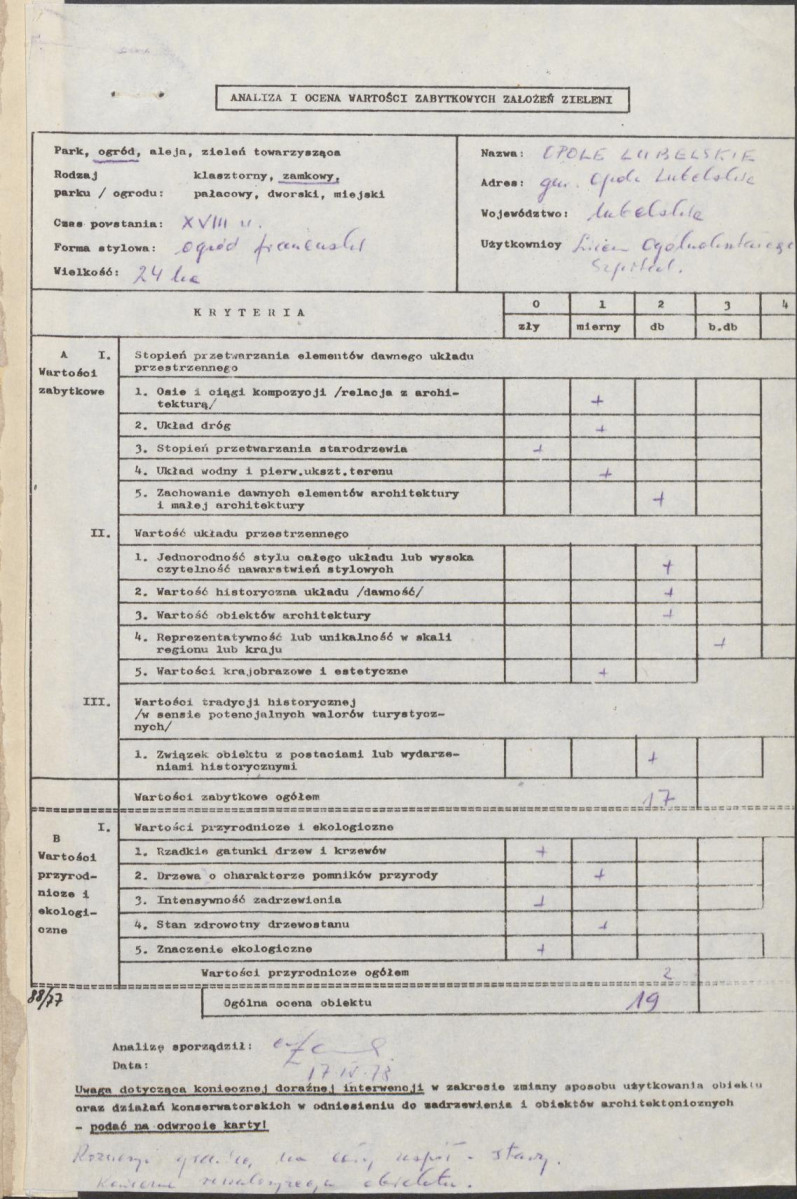 ANALIZA I OCENA WARTOŚCI ZABYTKOWYCH ZAŁOŻEŃ ZIELENI
Park, ogród, aleja, zieleń towarzysząca
Rodzaj klasztorny, zamkowy,
parku / ogrodu: pałacowy, dworski, miejski
Czas powstania: XVIII w.
Forma stylowa: ogród francuski
Wielkość: 24 ha
Nazwa: OPOLE LUBELSKIE
Adres: gm. Opole Lubelskie
Województwo: lubelskie
Użytkownicy Liceum Ogólnokształcące
Szpital.
KRYTERIA
0 1 2 3 4
zły mierny db b.db
A I. Stopień przetwarzania elementów dawnego układu
Wartości przestrzennego
zabytkowe 1. Osie i ciągi kompozycji /relacja z archi-
tekturą/ +
2. Układ dróg +
3. Stopień przetwarzania starodrzewia +
4. Układ wodny i pierw.ukszt.terenu +
5. Zachowanie dawnych elementów architektury
i małej architektury +
II. Wartość układu przestrzennego
1. Jednorodność stylu całego układu lub wysoka
czytelność nawarstwień stylowych +
2. Wartość historyczna układu /dawność/ +
3. Wartość obiektów architektury +
4. Reprezentatywność lub unikalność w skali
regionu lub kraju +
5. Wartości krajobrazowe i estetyczne +
III. Wartości tradycji historycznej
/w sensie potencjalnych walorów turystycz-
nych/
1. Związek obiektu z postaciami lub wydarze-
niami historycznymi +
Wartości zabytkowe ogółem 17
B I. Wartości przyrodnicze i ekologiczne
Wartości 1. Rzadkie gatunki drzew i krzewów +
przyrod- 2. Drzewa o charakterze pomników przyrody +
nicze i 3. Intensywność zadrzewienia +
ekologi- 4. Stan zdrowotny drzewostanu +
czne 5. Znaczenie ekologiczne +
Wartości przyrodnicze ogółem 2
88/77 Ogólna ocena obiektu 19
Analizę sporządził:
Data: 17 IV
Uwaga dotycząca koniecznej doraźnej interwencji w zakresie zmiany sposobu użytkowania obiektu
oraz działań konserwatorskich w odniesieniu do zadrzewienia i obiektów architektonicznych
- podać na odwrocie karty!
na stawy.
obiektu.